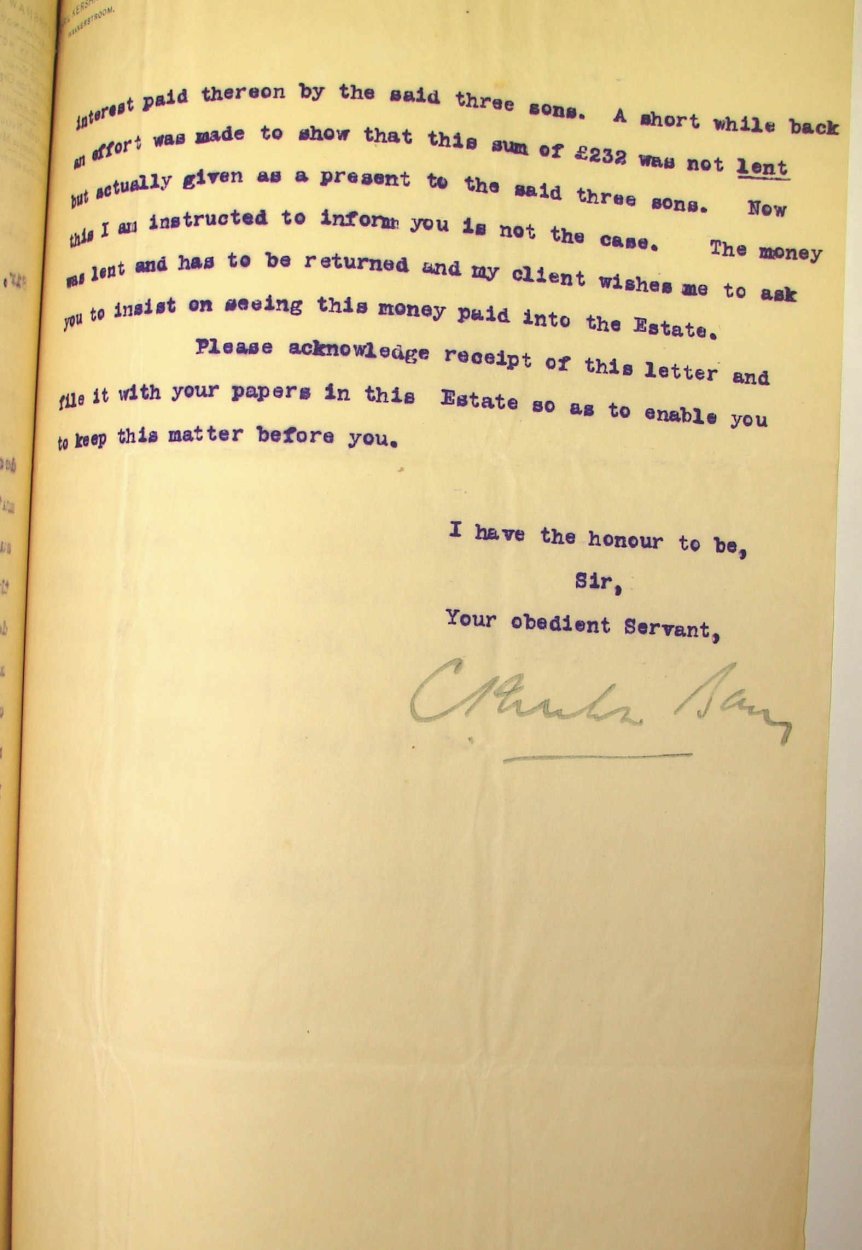 WAKKERSTROOM.
interest paid thereon by the said three sons. A short while back
an effort was made to show that this sum of £232 was not lent
but actually given as a present to the said three sons. Now
this I am instructed to inform you is not the case. The money
was lent and has to be returned and my client wishes me to ask
you to insist on seeing this money paid into the Estate.
Please acknowledge receipt of this letter and
file it with your papers in this Estate so as to enable you
to keep this matter before you.
I have the honour to be,
Sir,
Your obedient Servant,